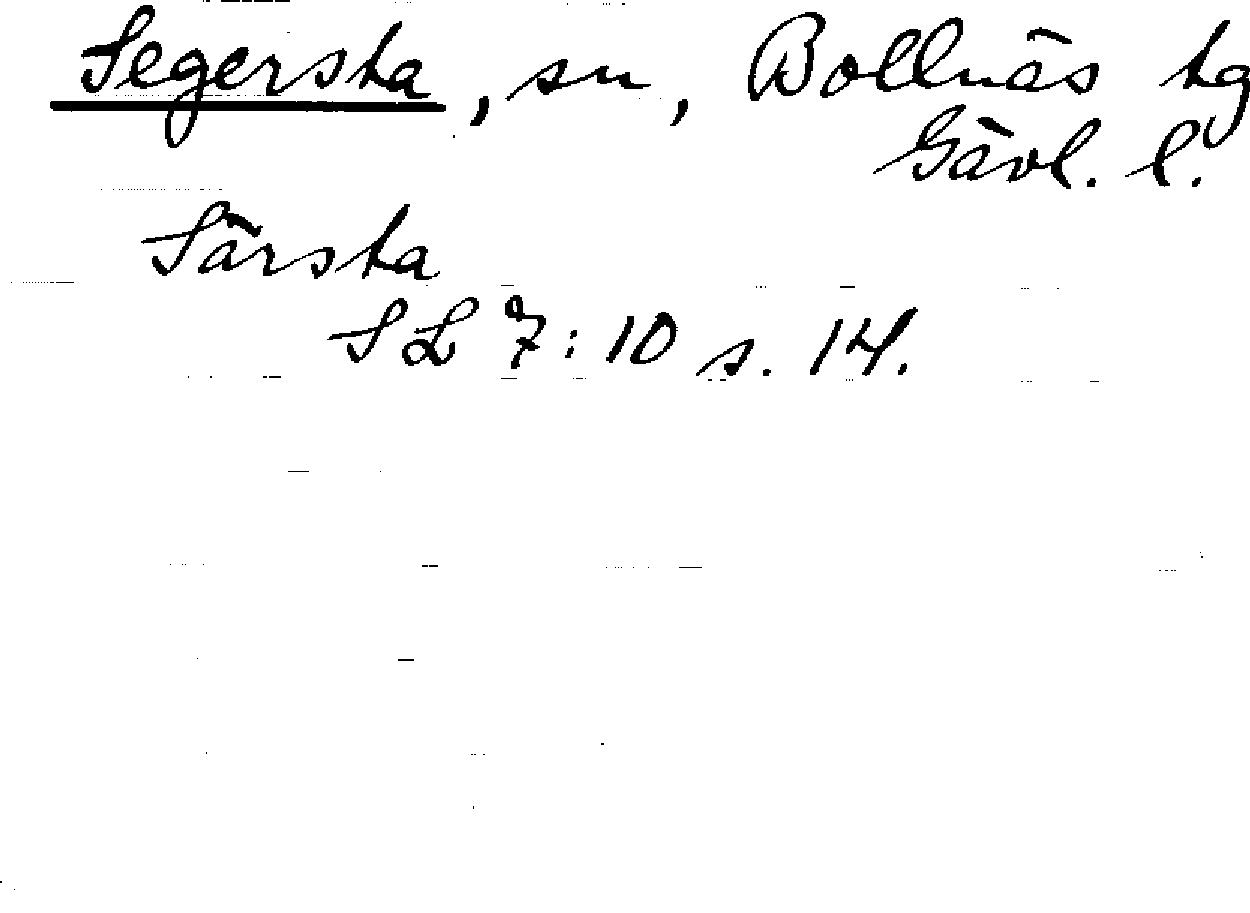 Segersta, sn, Bollnäs tg
Gävl. l.
Särsta
SL 7:10 s. 14.